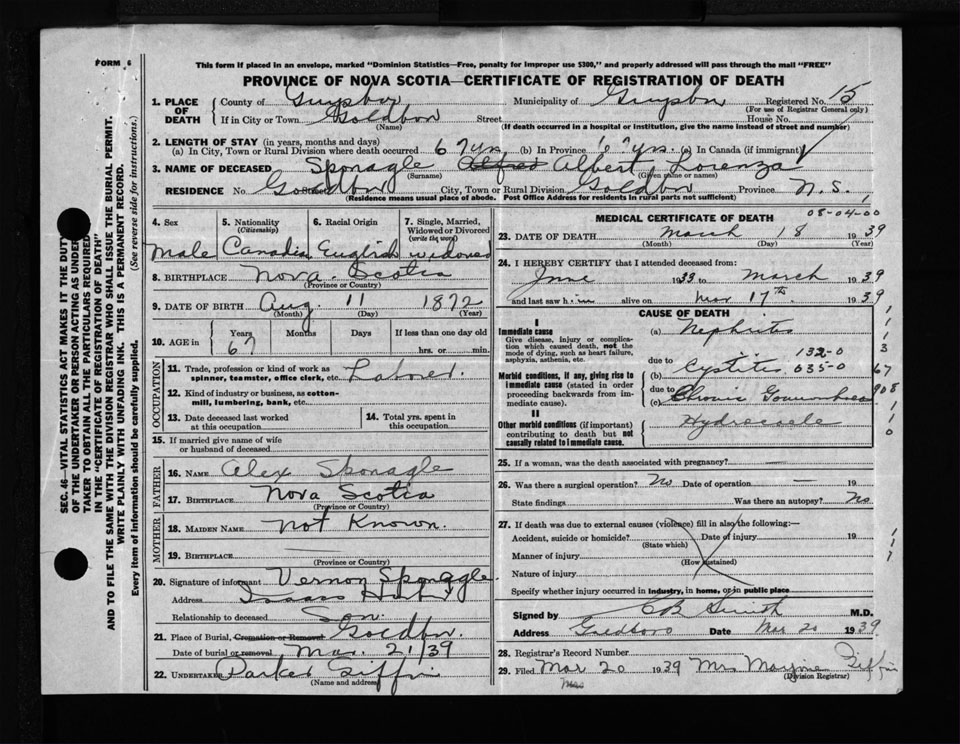 FORM 6
This form if placed in an envelope, marked "Dominion Statistics—Free, penalty for improper use $300," and properly addressed will pass through the mail "FREE"
PROVINCE OF NOVA SCOTIA—CERTIFICATE OF REGISTRATION OF DEATH
1. PLACE OF DEATH County of Guysbor Municipality of Guysbor Registered No. 15
(For use of Registrar General only)
If in City or Town Goldbor Street House No.
(Name) (If death occurred in a hospital or institution, give the name instead of street and number)
2. LENGTH OF STAY (in years, months and days)
(a) In City, Town or Rural Division where death occurred 67 yrs. (b) In Province 67 yrs. (c) In Canada (if immigrant)
3. NAME OF DECEASED Sponagle Alfred Albert Lorenza
(Surname) (Given name or names)
RESIDENCE No. Goldbor Street City, Town or Rural Division Goldbor Province N.S.
(Residence means usual place of abode. Post Office Address for residents in rural parts not sufficient)
4. Sex Male
5. Nationality (Citizenship) Canadian
6. Racial Origin English
7. Single, Married, Widowed or Divorced (write the word) widowed
8. BIRTHPLACE Nova Scotia
(Province or Country)
9. DATE OF BIRTH Aug. 11 1872
(Month) (Day) (Year)
10. AGE in Years Months Days If less than one day old
67 hrs. or min.
OCCUPATION
11. Trade, profession or kind of work as spinner, teamster, office clerk, etc. Labored.
12. Kind of industry or business, as cotton-mill, lumbering, bank, etc.
13. Date deceased last worked at this occupation
14. Total yrs. spent in this occupation
15. If married give name of wife or husband of deceased
FATHER
16. NAME Alex Sponagle
17. BIRTHPLACE Nova Scotia
(Province or Country)
MOTHER
18. MAIDEN NAME Not Known.
19. BIRTHPLACE
(Province or Country)
20. Signature of informant Vernon Sponagle.
Address Isaacs Hbr
Relationship to deceased Son.
21. Place of Burial, Cremation or Removal Goldbor.
Date of burial or removal Mar. 21/39
22. UNDERTAKER Parker Giffin
(Name and address)
MEDICAL CERTIFICATE OF DEATH
08-04-00
23. DATE OF DEATH March 18 1939
(Month) (Day) (Year)
24. I HEREBY CERTIFY that I attended deceased from:
June 1933 to March 1939
and last saw him alive on Mar 17th 1939
CAUSE OF DEATH
I
Immediate cause
Give disease, injury or complication which caused death, not the mode of dying, such as heart failure, asphyxia, asthenia, etc.
(a) Nephritis
132-0
due to
Morbid conditions, if any, giving rise to immediate cause (stated in order proceeding backwards from immediate cause).
(b) Cystitis 035-0
due to
(c) Chronic Gonorrhoea
II
Other morbid conditions (if important) contributing to death but not causally related to immediate cause.
Hydrocele
1
1
1
3
67
908
1
1
0
25. If a woman, was the death associated with pregnancy?
26. Was there a surgical operation? No Date of operation 19
State findings Was there an autopsy? No
27. If death was due to external causes (violence) fill in also the following:—
Accident, suicide or homicide? Date of injury 19
(State which)
Manner of injury
(How sustained)
Nature of injury
Specify whether injury occurred in industry, in home, or in public place
Signed by CB Smith M.D.
Address Goldboro Date Mar 20 1939
28. Registrar's Record Number
29. Filed Mar 20 1939 Mrs Giffin
(Division Registrar)
Mrs
SEC. 46—VITAL STATISTICS ACT MAKES IT THE DUTY OF THE UNDERTAKER OR PERSON ACTING AS UNDERTAKER TO OBTAIN ALL THE PARTICULARS REQUIRED IN THE "CERTIFICATE OF REGISTRATION OF DEATH" AND TO FILE THE SAME WITH THE DIVISION REGISTRAR WHO SHALL ISSUE THE BURIAL PERMIT.
WRITE PLAINLY WITH UNFADING INK. THIS IS A PERMANENT RECORD.
Every item of information should be carefully supplied. (See reverse side for instructions.)